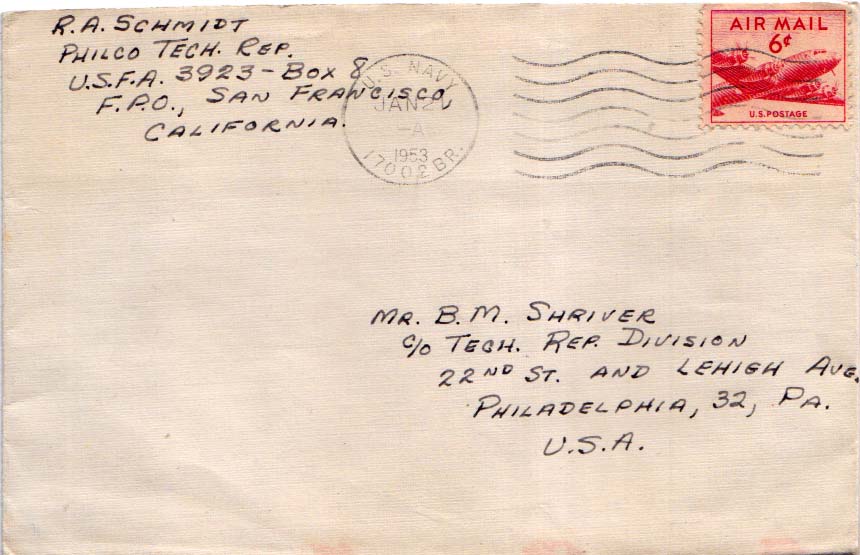 R.A. SCHMIDT
PHILCO TECH. REP.
U.S.F.A. 3923 - BOX 8
F.P.O., SAN FRANCISCO
CALIFORNIA.
U.S. NAVY
JAN 21
-A
1953
17002 BR.
AIR MAIL
6¢
U.S. POSTAGE
MR. B.M. SHRIVER
c/o TECH. REP. DIVISION
22ND ST. AND LEHIGH AVE.
PHILADELPHIA, 32, PA.
U.S.A.